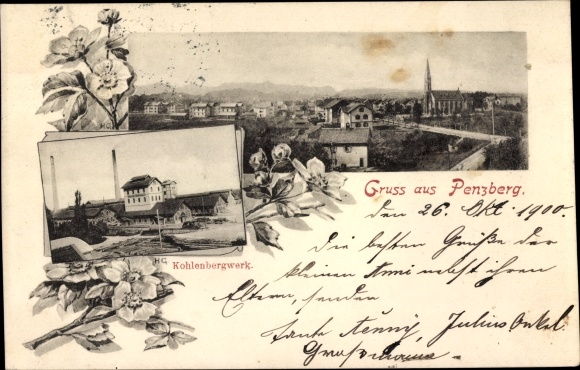 Gruss aus Penzberg.
den 26. Okt. 1900.
HG
Kohlenbergwerk.
Die besten Grüße der
kleinen Anni nebst ihren
Eltern, senden
Tante Julius Onkel
Großmama